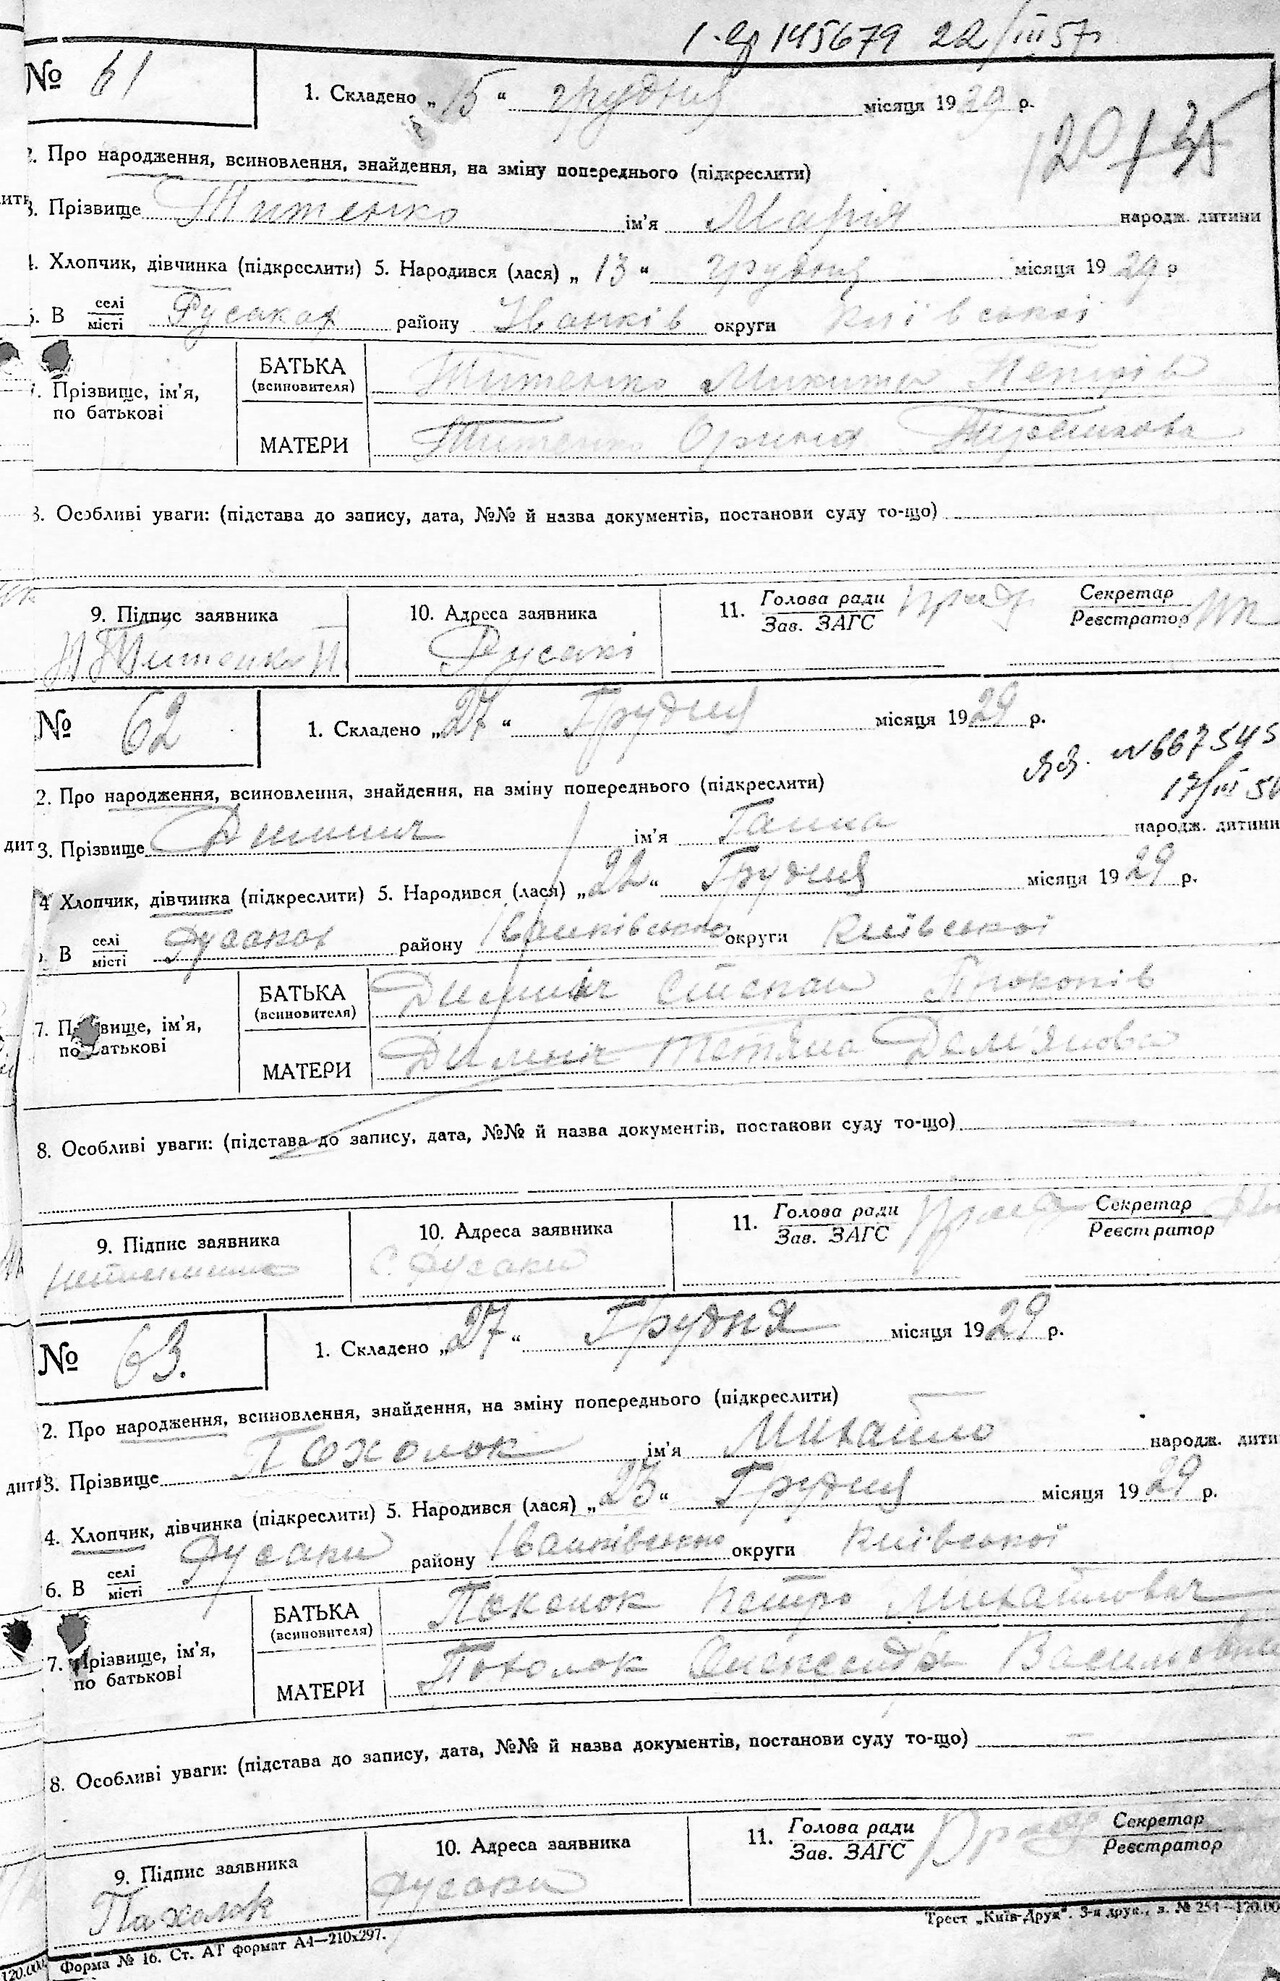 145679 22/III 57 р
№ 61
1. Складено „15“ грудня місяця 1929 р.
120/35
2. Про народження, всиновлення, знайдення, на зміну попереднього (підкреслити)
3. Прізвище Титенко ім'я Марія народж. дитини
4. Хлопчик, дівчинка (підкреслити) 5. Народився (лася) „13“ грудня місяця 1929 р
6. В селі/місті Русаках району Іванків округи Київської
7. Прізвище, ім'я, по батькові
БАТЬКА (всиновителя) Титенко Микита Петрів
МАТЕРИ Титенко Орина
8. Особливі уваги: (підстава до запису, дата, №№ й назва документів, постанови суду то-що)
9. Підпис заявника Титенко
10. Адреса заявника Русакі
11. Голова ради/Зав. ЗАГС
Секретар/Реєстратор
№ 62
1. Складено „27“ Грудня місяця 1929 р.
№667545
2. Про народження, всиновлення, знайдення, на зміну попереднього (підкреслити)
3. Прізвище Димнич ім'я Ганна народж. дитини
4 Хлопчик, дівчинка (підкреслити) 5. Народився (лася) „22“ Грудня місяця 1929 р.
В селі/місті Русаках району Іванківського округи Київської
7. Прізвище, ім'я, по батькові
БАТЬКА (всиновителя) Димнич Степан Прокопів
МАТЕРИ Димнич Тетяна Дем'янова
8. Особливі уваги: (підстава до запису, дата, №№ й назва документів, постанови суду то-що)
9. Підпис заявника неписьменна
10. Адреса заявника с. Русаки
11. Голова ради/Зав. ЗАГС
Секретар/Реєстратор
№ 63.
1. Складено „27“ Грудня місяця 1929 р.
2. Про народження, всиновлення, знайдення, на зміну попереднього (підкреслити)
3. Прізвище Похолок ім'я Михайло народж. дити
4. Хлопчик, дівчинка (підкреслити) 5. Народився (лася) „23“ Грудня місяця 1929 р.
6. В селі/місті Русаки району Іванківського округи Київської
7. Прізвище, ім'я, по батькові
БАТЬКА (всиновителя) Похолок Петро Михайлович
МАТЕРИ Похолок Олександра Василовна
8. Особливі уваги: (підстава до запису, дата, №№ й назва документів, постанови суду то-що)
9. Підпис заявника Пахолок
10. Адреса заявника Русаки
11. Голова ради/Зав. ЗАГС
Секретар/Реєстратор
Форма № 16. Ст. АТ формат А4—210х297.
Трест „Київ-Друк“. 3-я друк., з. № 254—120.00